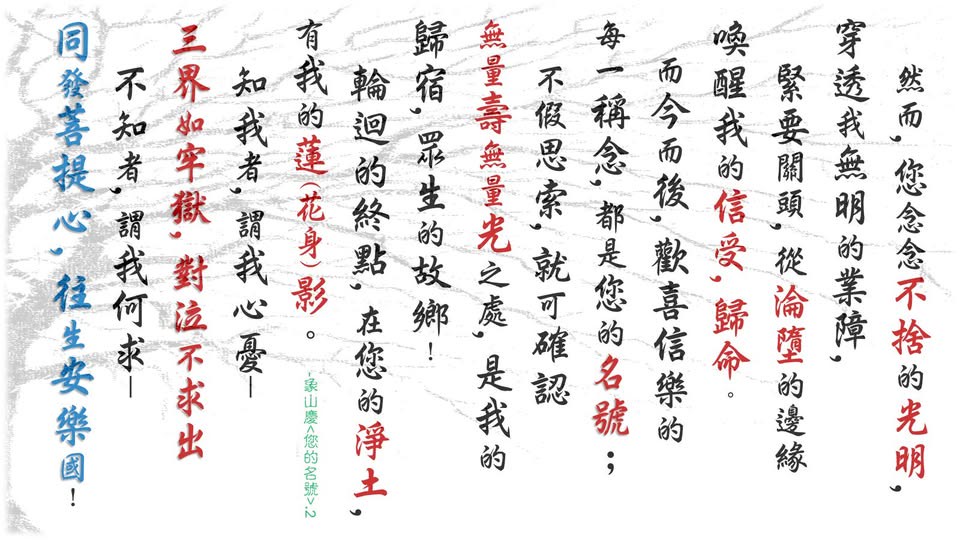 然而,您念念不捨的光明,
穿透我無明的業障,
緊要關頭,從淪墮的邊緣
喚醒我的信受,歸命。
而今而後,歡喜信樂的
每一稱念,都是您的名號;
不假思索,就可確認
無量壽無量光之處,是我的
歸宿,眾生的故鄉!
輪迴的終點,在您的淨土,
有我的蓮(花身)影。
-象山慶<您的名號>.2
知我者,謂我心憂—
三界如牢獄,對泣不求出
不知者,謂我何求—
同發菩提心,往生安樂國!